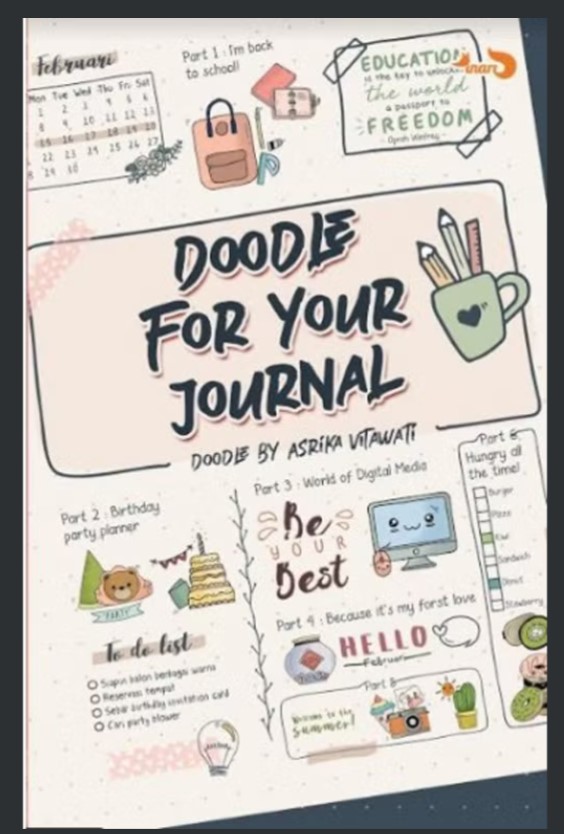 Februari
Mon Tue Wed Thu Fri Sat
1 2 3 4 5 6
8 9 10 11 12 13
15 16 17 18 19 20
22 23 24 25 26 27
29 30
Part 1 : I'm back
to school!
EDUCATION
is the key to unlock
the world
a passport to
FREEDOM
- Oprah Winfrey -
DOODLE
FOR YOUR
JOURNAL
DOODLE BY ASRIKA VITAWATI
Part 2 : Birthday
party planner
PARTY
To do list
Siapin balon berbagai warna
Reservasi tempat
Sebar birthday invitation card
Cari party blower
Part 3 : World of Digital Media
Be
YOUR
Best
Part 4 : Because it's my forst love
HELLO
Februari
Part 5
Welcome to the
Summer!
Part 6
Hungry all
the time!
Burger
Pizza
Kiwi
Sandwich
Donut
Strawberry